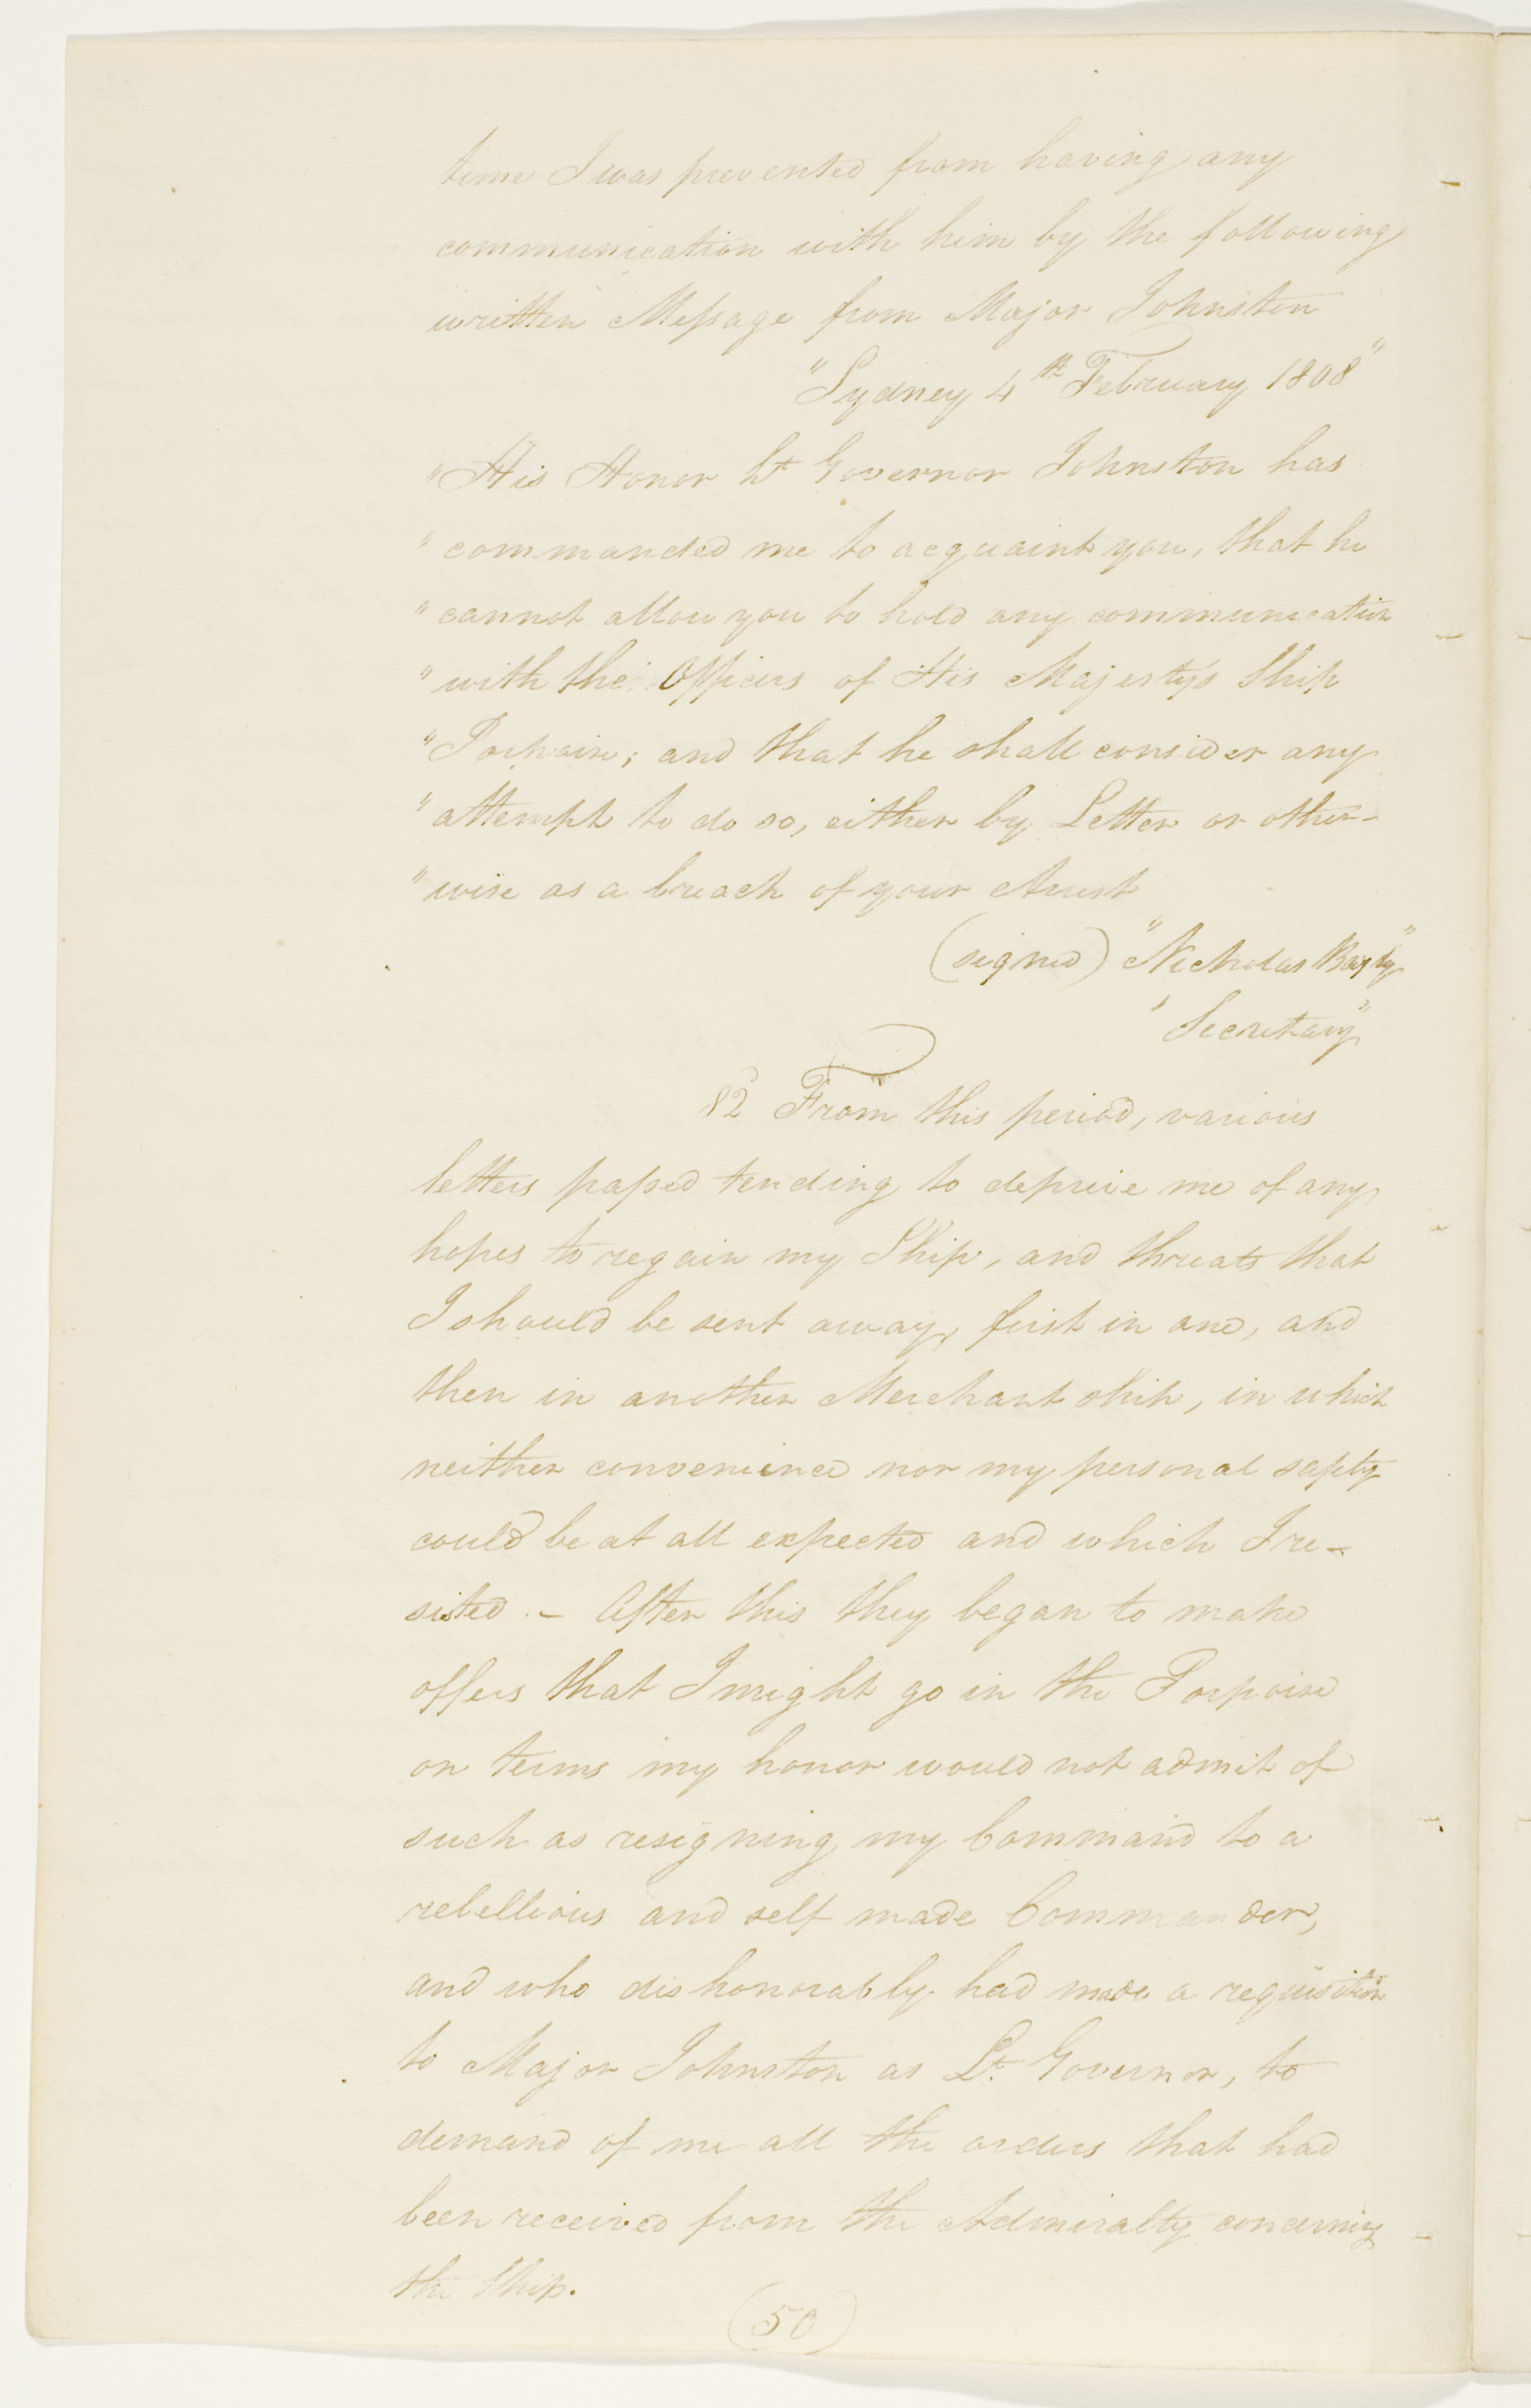 time I was prevented from having any
communication with him by the following
written Message from Major Johnston
"Sydney 4th February 1808"
"His Honor Lt Governor Johnston has
"commanded me to acquaint you, that he
"cannot allow you to hold any communication
"with the Officers of His Majesty's Ship
"Porpoise; and that he shall consider any
"attempt to do so, either by Letter or other-
"wise as a breach of your Arrest
(signed) "Nicholas Bayly"
"Secretary"
82 From this period, various
letters passed tending to deprive me of any
hopes to regain my Ship, and threats that
I should be sent away, first in one, and
then in another Merchant ship, in which
neither convenience nor my personal safety
could be at all expected and which I re-
sisted. - After this they began to make
offers that I might go in the Porpoise
on terms my honor would not admit of
such as resigning my Command to a
rebellious and self made Commander,
and who dishonorably had made a requisition
to Major Johnston as Lt. Governor, to
demand of me all the orders that had
been received from the Admiralty concerning
the Ship.
(50)